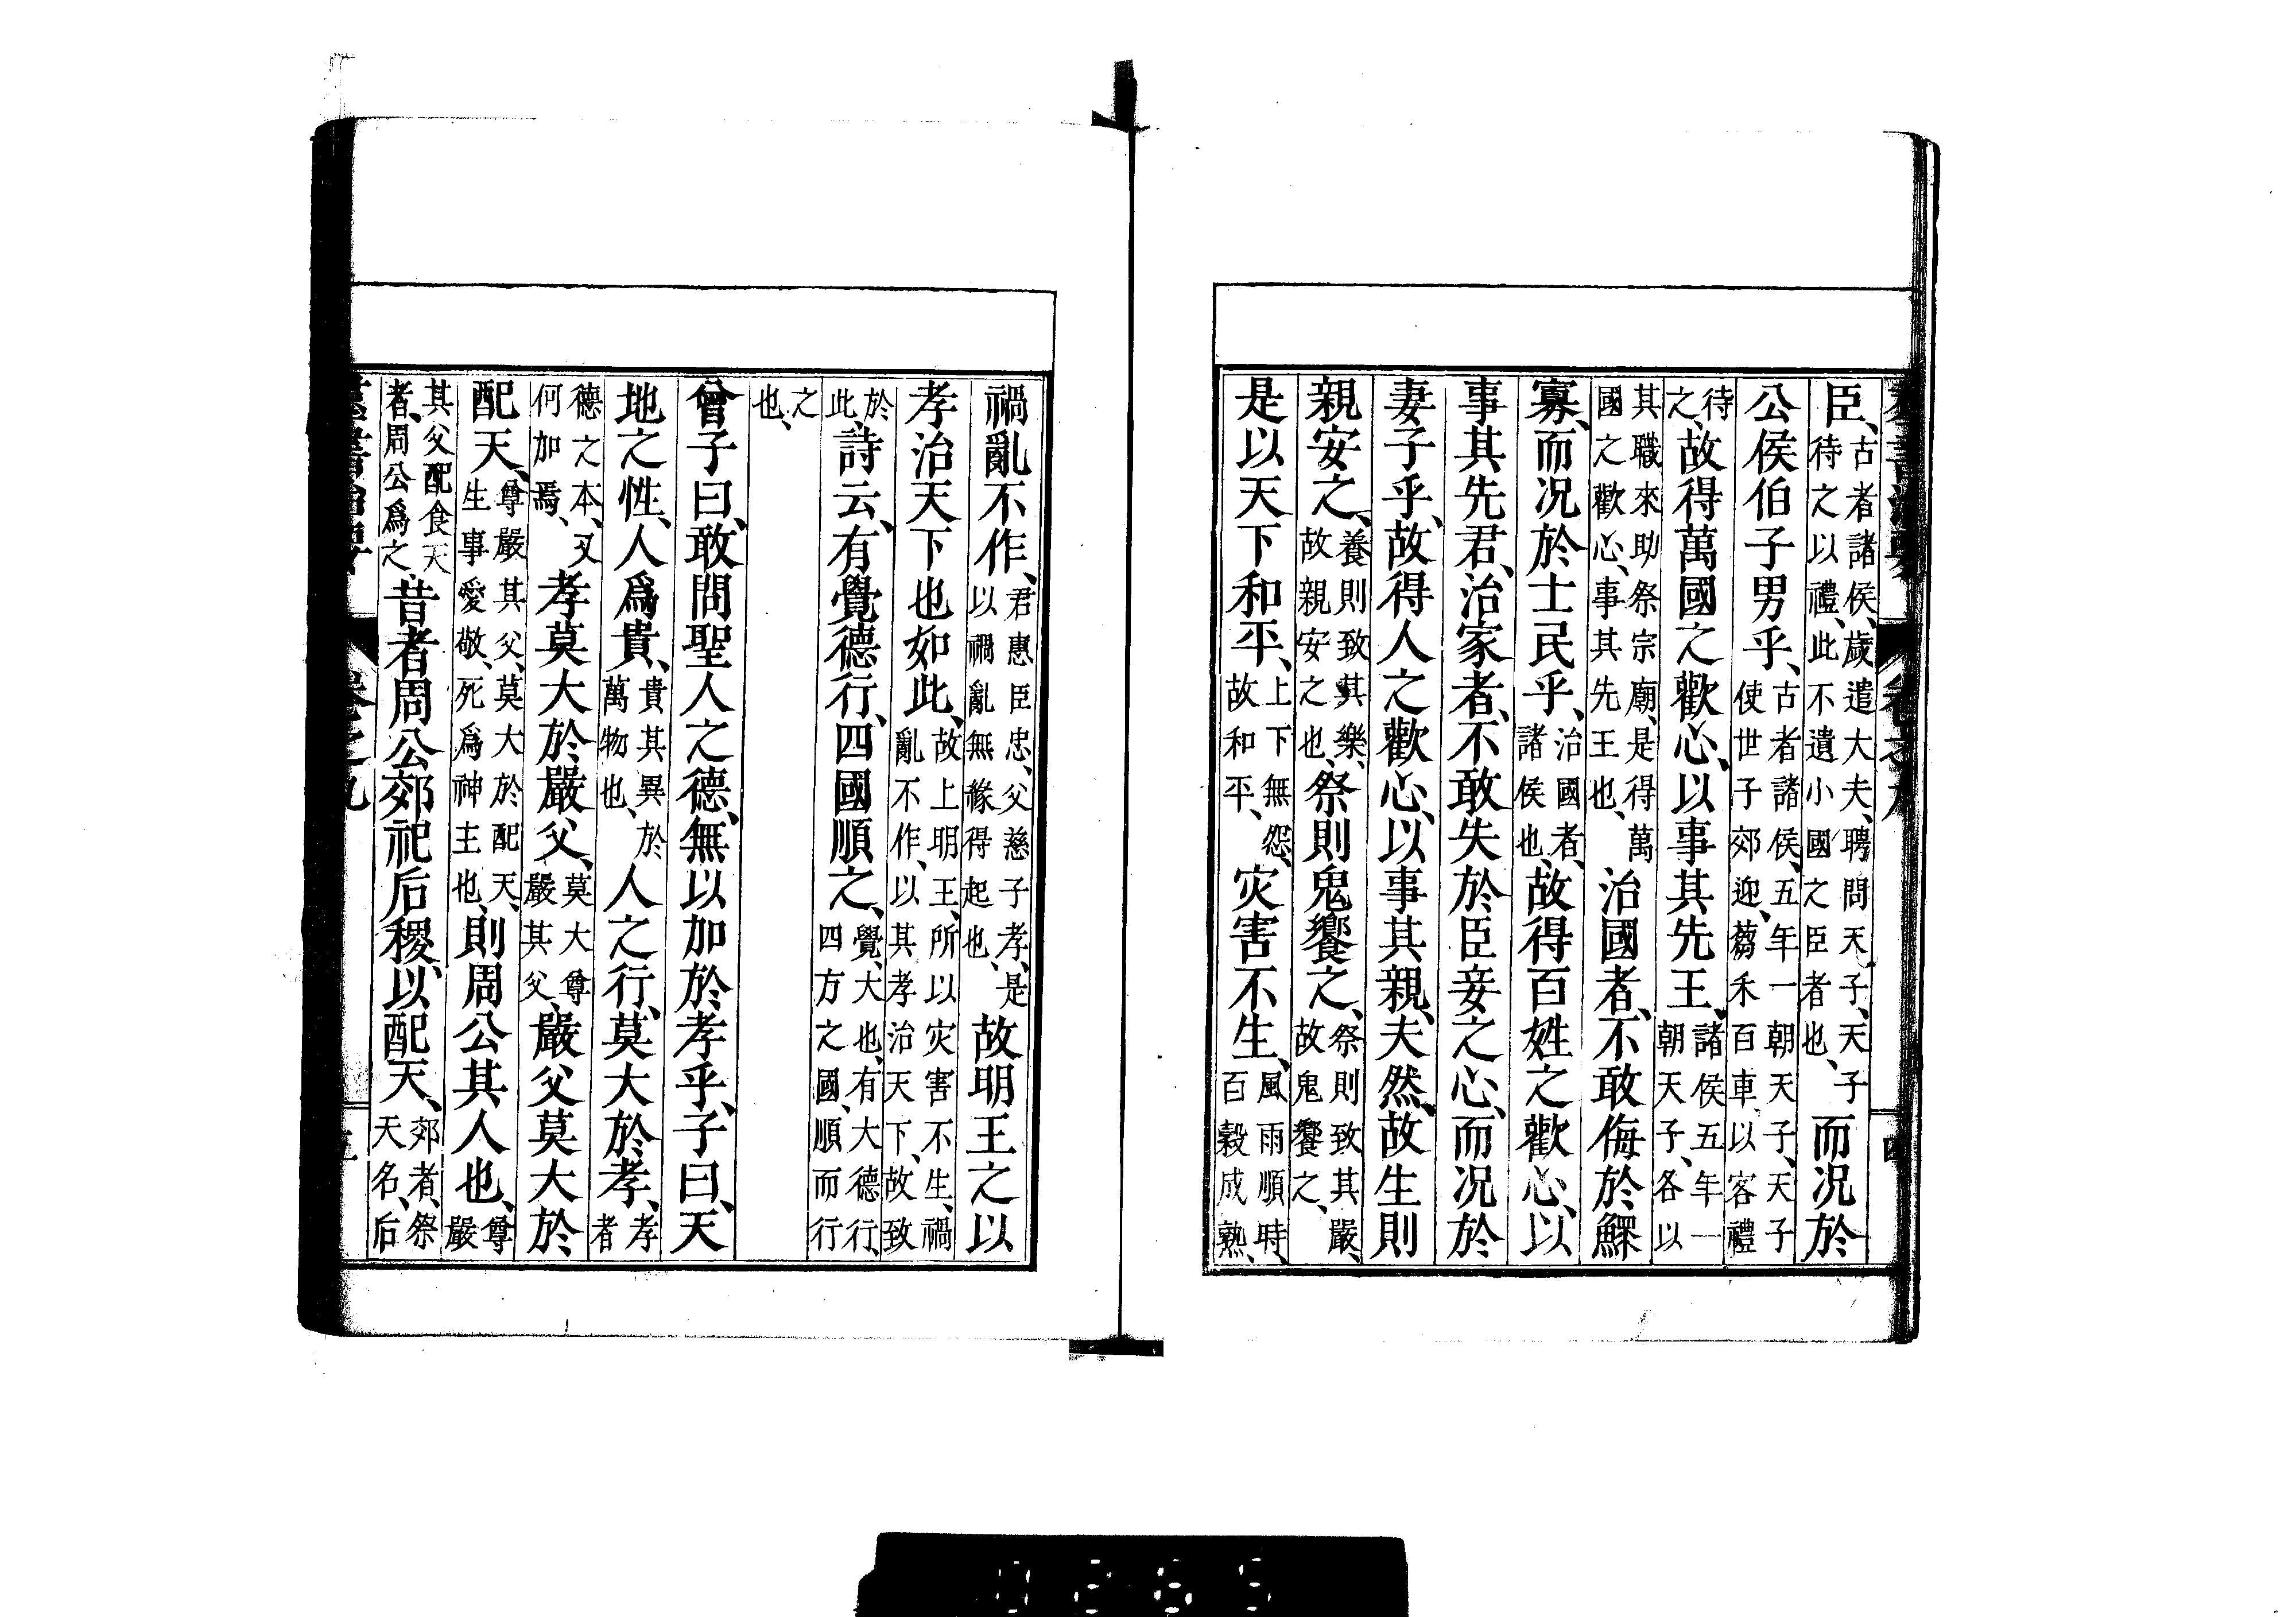 群書治要 卷之九 四
臣、古者諸侯、歲遣大夫、聘問天子、天子待之以禮、此不遺小國之臣者也、而况於
公侯伯子男乎、古者諸侯、五年一朝天子、天子使世子郊迎、蒭禾百車以客禮
待之、故得萬國之歡心、以事其先王、諸侯五年一朝天子、各以
其職來助祭宗廟、是得萬國之歡心、事其先王也、治國者、不敢侮於鰥
寡、而况於士民乎、治國者、諸侯也、故得百姓之歡心、以
事其先君、治家者、不敢失於臣妾之心、而况於
妻子乎、故得人之歡心、以事其親、夫然、故生則
親安之、養則致其樂、故親安之也、祭則鬼饗之、祭則致其嚴、故鬼饗之、
是以天下和平、上下無怨、故和平、灾害不生、風雨順時、百穀成熟、
禍亂不作、君惠臣忠、父慈子孝、是以禍亂無緣得起也、故明王之以
孝治天下也如此、故上明王、所以灾害不生、禍亂不作、以其孝治天下、故致
於此、詩云、有覺德行、四國順之、覺、大也、有大德行、四方之國、順而行
之也、
曾子曰、敢問聖人之德、無以加於孝乎、子曰、天
地之性、人爲貴、貴其異於萬物也、人之行、莫大於孝、孝者
德之本、又何加焉、孝莫大於嚴父、莫大尊嚴其父、嚴父莫大於
配天、尊嚴其父、莫大於配天、生事愛敬、死爲神主也、則周公其人也、尊嚴
其父配食天者、周公爲之、昔者周公郊祀后稷、以配天、郊者、祭天名、后
群書治要 卷之九 五